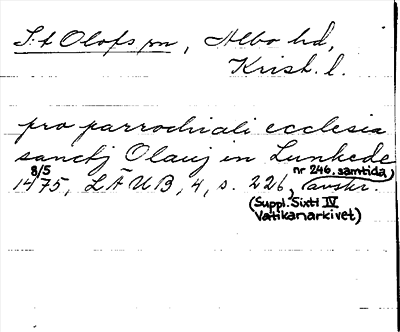 S:t Olofs sn, Albo hd,
Krist. l.
pro parrochiali ecclesia
sanctj Olauj in Lunkede
8/5 nr 246, samtida,
1475, LÄUB, 4, s. 226, avskr.
(Suppl. Sixti IV
Vatikanarkivet)